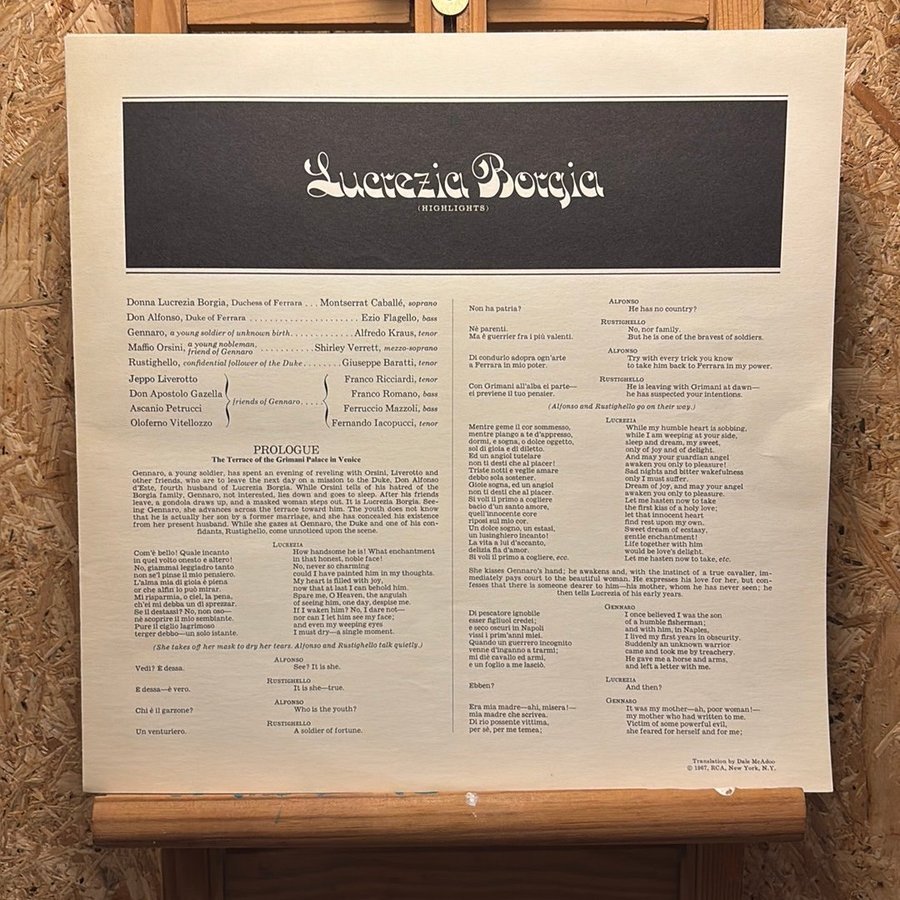 Lucrezia Borgia
(HIGHLIGHTS)
Donna Lucrezia Borgia, Duchess of Ferrara . . . Montserrat Caballé, soprano
Don Alfonso, Duke of Ferrara . . . . . . . . . . . . . . . . . . . . . . Ezio Flagello, bass
Gennaro, a young soldier of unknown birth. . . . . . . . . . . . . Alfredo Kraus, tenor
Maffio Orsini, a young nobleman, friend of Gennaro . . . . . . . . . . . Shirley Verrett, mezzo-soprano
Rustighello, confidential follower of the Duke . . . . . . . . Giuseppe Baratti, tenor
Jeppo Liverotto Franco Ricciardi, tenor
Don Apostolo Gazella Franco Romano, bass
friends of Gennaro. . . . .
Ascanio Petrucci Ferruccio Mazzoli, bass
Oloferno Vitellozzo Fernando Iacopucci, tenor
PROLOGUE
The Terrace of the Grimani Palace in Venice
Gennaro, a young soldier, has spent an evening of reveling with Orsini, Liverotto and
other friends, who are to leave the next day on a mission to the Duke, Don Alfonso
d'Este, fourth husband of Lucrezia Borgia. While Orsini tells of his hatred of the
Borgia family, Gennaro, not interested, lies down and goes to sleep. After his friends
leave, a gondola draws up, and a masked woman steps out. It is Lucrezia Borgia. See-
ing Gennaro, she advances across the terrace toward him. The youth does not know
that he is actually her son by a former marriage, and she has concealed his existence
from her present husband. While she gazes at Gennaro, the Duke and one of his con-
fidants, Rustighello, come unnoticed upon the scene.
LUCREZIA
Com'è bello! Quale incanto How handsome he is! What enchantment
in quel volto onesto e altero! in that honest, noble face!
No, giammai leggiadro tanto No, never so charming
non se'l pinse il mio pensiero. could I have painted him in my thoughts.
L'alma mia di gioia è piena My heart is filled with joy,
or che alfin lo può mirar. now that at last I can behold him.
Mi risparmia, o ciel, la pena, Spare me, O Heaven, the anguish
ch'ei mi debba un dì sprezzar. of seeing him, one day, despise me.
Se il destassi? No, non oso— If I waken him? No, I dare not—
nè scoprire il mio sembiante. nor can I let him see my face;
Pure il ciglio lagrimoso and even my weeping eyes
terger debbo—un solo istante. I must dry—a single moment.
(She takes off her mask to dry her tears. Alfonso and Rustighello talk quietly.)
ALFONSO
Vedi? È dessa. See? It is she.
RUSTIGHELLO
È dessa—è vero. It is she—true.
ALFONSO
Chi è il garzone? Who is the youth?
RUSTIGHELLO
Un venturiero. A soldier of fortune.
ALFONSO
Non ha patria? He has no country?
RUSTIGHELLO
Nè parenti. No, nor family.
Ma è guerrier fra i più valenti. But he is one of the bravest of soldiers.
ALFONSO
Di condurlo adopra ogn'arte Try with every trick you know
a Ferrara in mio poter. to take him back to Ferrara in my power.
RUSTIGHELLO
Con Grimani all'alba ei parte— He is leaving with Grimani at dawn—
ei previene il tuo pensier. he has suspected your intentions.
(Alfonso and Rustighello go on their way.)
LUCREZIA
Mentre geme il cor sommesso, While my humble heart is sobbing,
mentre piango a te d'appresso, while I am weeping at your side,
dormi, e sogna, o dolce oggetto, sleep and dream, my sweet,
sol di gioia e di diletto. only of joy and of delight.
Ed un angiol tutelare And may your guardian angel
non ti desti che al piacer! awaken you only to pleasure!
Triste notti e veglie amare Sad nights and bitter wakefulness
debbo sola sostener. only I must suffer.
Gioie sogna, ed un angiol Dream of joy, and may your angel
non ti desti che al piacer. awaken you only to pleasure.
Si voli il primo a cogliere Let me hasten now to take
bacio d'un santo amore, the first kiss of a holy love;
quell'innocente core let that innocent heart
riposi sul mio cor. find rest upon my own.
Un dolce sogno, un estasi, Sweet dream of ecstasy,
un lusinghiero incanto! gentle enchantment!
La vita a lui d'accanto, Life together with him
delizia fia d'amor. would be love's delight.
Si voli il primo a cogliere, ecc. Let me hasten now to take, etc.
She kisses Gennaro's hand; he awakens and, with the instinct of a true cavalier, im-
mediately pays court to the beautiful woman. He expresses his love for her, but con-
fesses that there is someone dearer to him—his mother, whom he has never seen; he
then tells Lucrezia of his early years.
GENNARO
Di pescatore ignobile I once believed I was the son
esser figliuol credei; of a humble fisherman;
e seco oscuri in Napoli and with him, in Naples,
vissi i prim'anni miei. I lived my first years in obscurity.
Quando un guerrero incognito Suddenly an unknown warrior
venne d'inganno a trarmi; came and took me by treachery.
mi diè cavallo ed armi, He gave me a horse and arms,
e un foglio a me lasciò. and left a letter with me.
LUCREZIA
Ebben? And then?
GENNARO
Era mia madre—ahi, misera!— It was my mother—ah, poor woman!—
mia madre che scrivea. my mother who had written to me.
Di rio possente vittima, Victim of some powerful evil,
per sè, per me temea; she feared for herself and for me;
Translation by Dale McAdoo
© 1967, RCA, New York, N.Y.